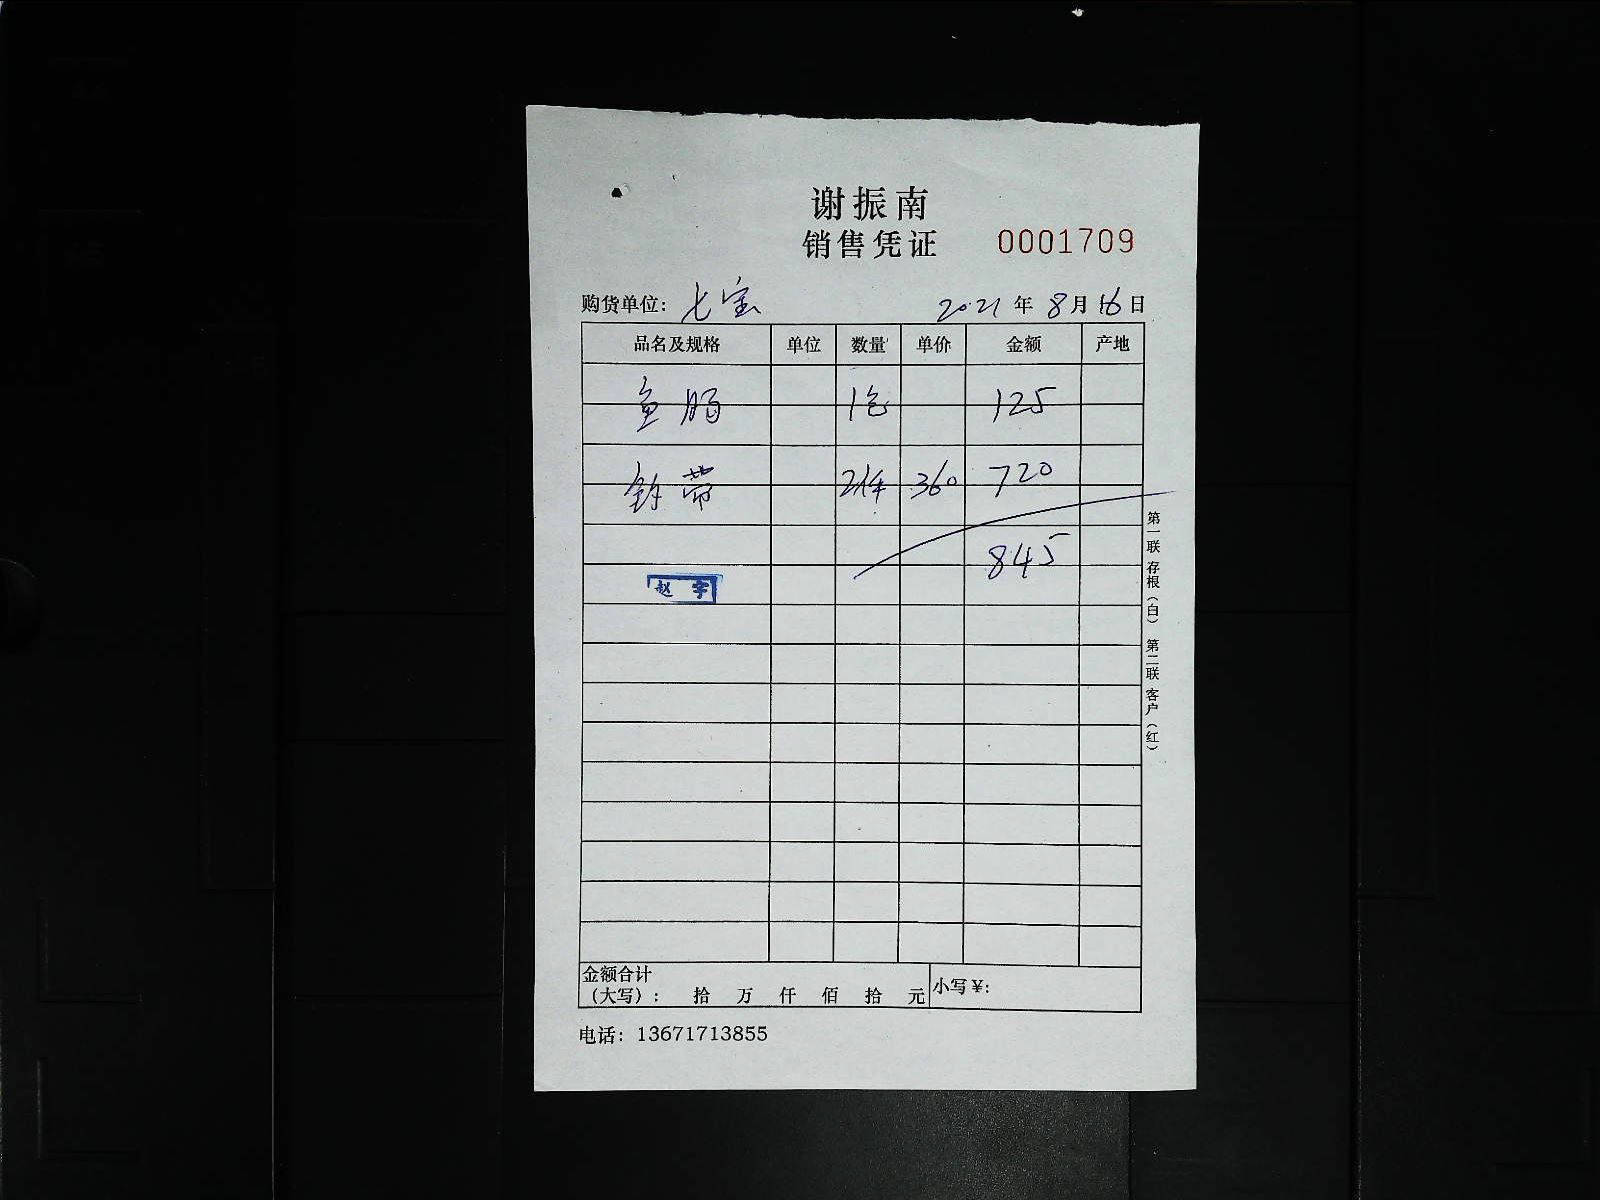 谢振南
销售凭证 0001709
购货单位: 七宝 2021年8月16日
品名及规格 单位 数量 单价 金额 产地
鱼肠 1包 125
钓带 2件 360 720
845
赵宇
第一联 存根(白) 第二联 客户(红)
金额合计
(大写): 拾 万 仟 佰 拾 元 小写¥:
电话: 13671713855